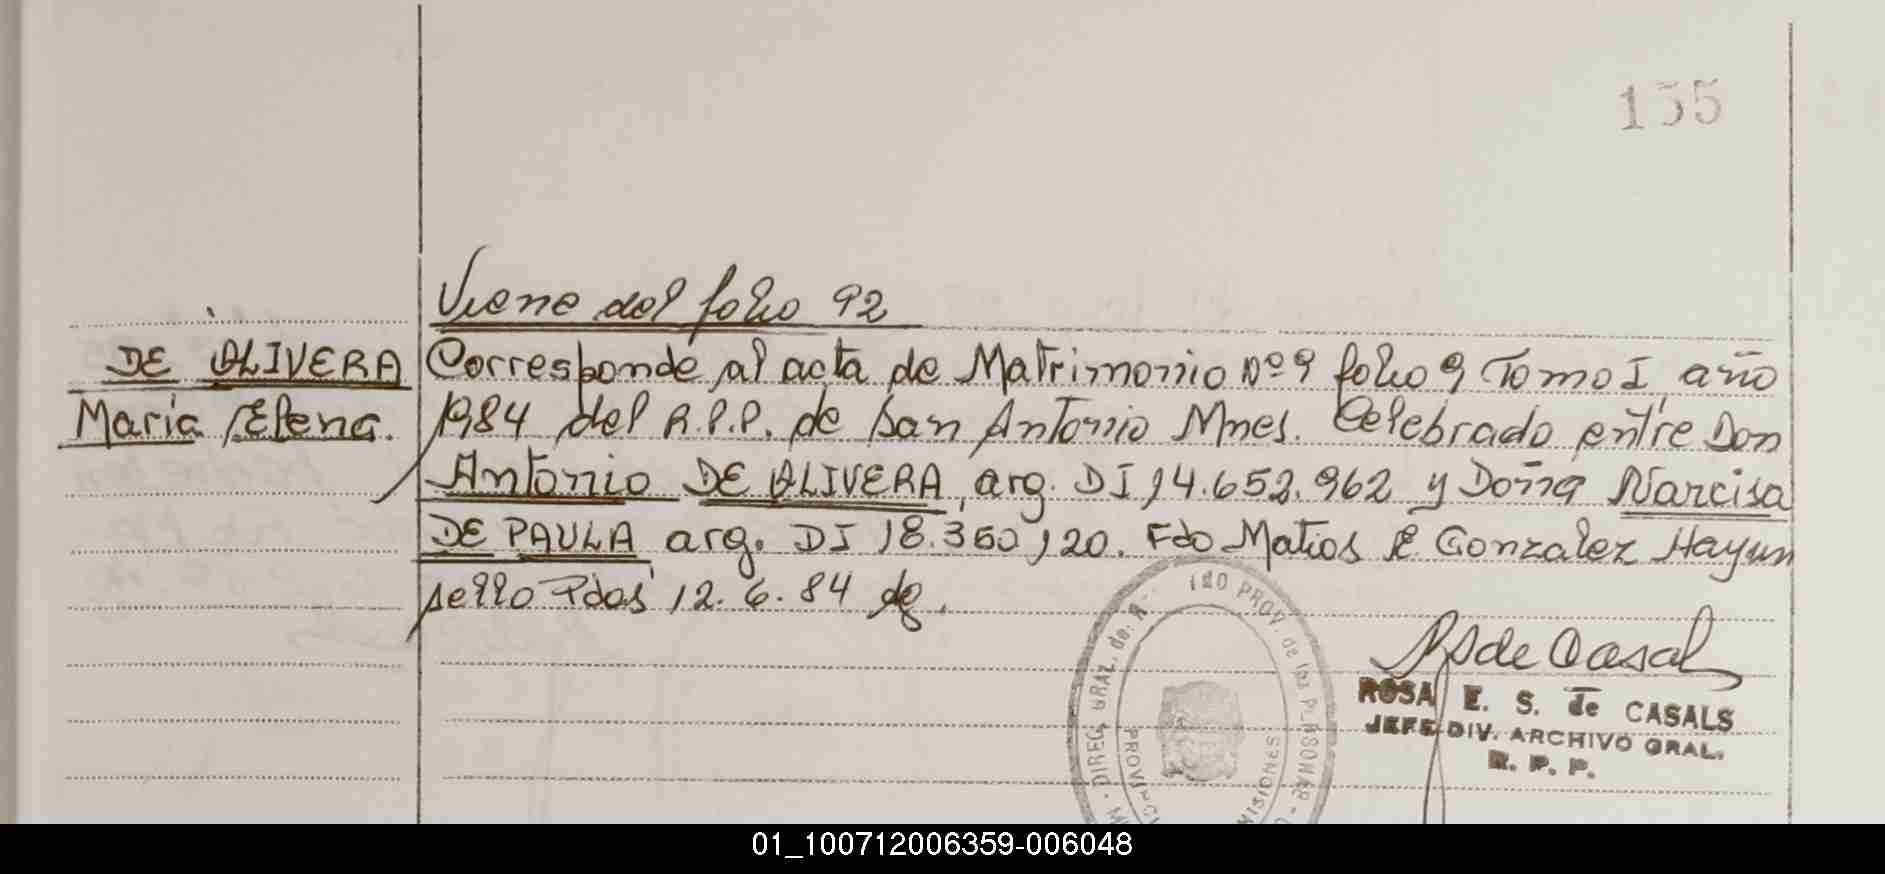 155
Viene del folio 92
DE OLIVERA
María Elena.
Corresponde al acta de Matrimonio Nº 9 folio 9 Tomo I año
1984 del R.P.P. de San Antonio Mnes. Celebrado entre Don
Antonio DE OLIVERA, arg. DI 14.652.962 y Doña Narcisa
DE PAULA arg. DI 18.350.120. Fdo Matios E. Gonzalez Hayun
sello Pdas 12.6.84
ROSA E. S. de CASALS
JEFE DIV. ARCHIVO GRAL.
R. P. P.
PROV. de las PERSONAS
DIREC. GRAL. de
MISIONES
01_100712006359-006048